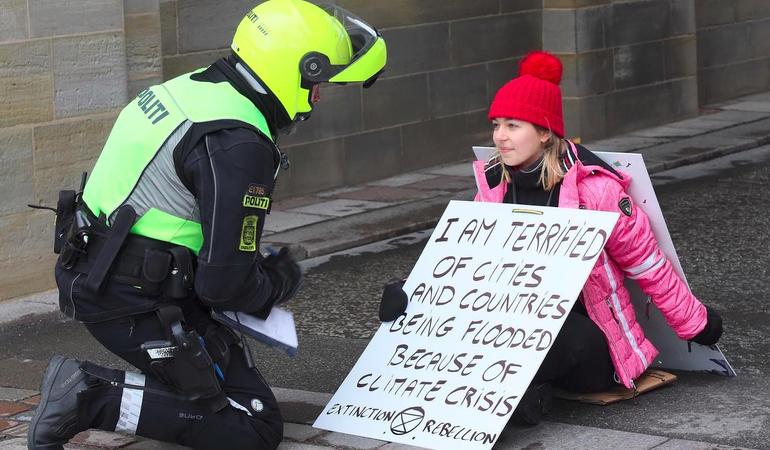 POLITI
E1785
POLITI
I AM TERRIFIED
OF CITIES
AND COUNTRIES
BEING FLOODED
BECAUSE OF
CLIMATE CRISIS
EXTINCTION REBELLION